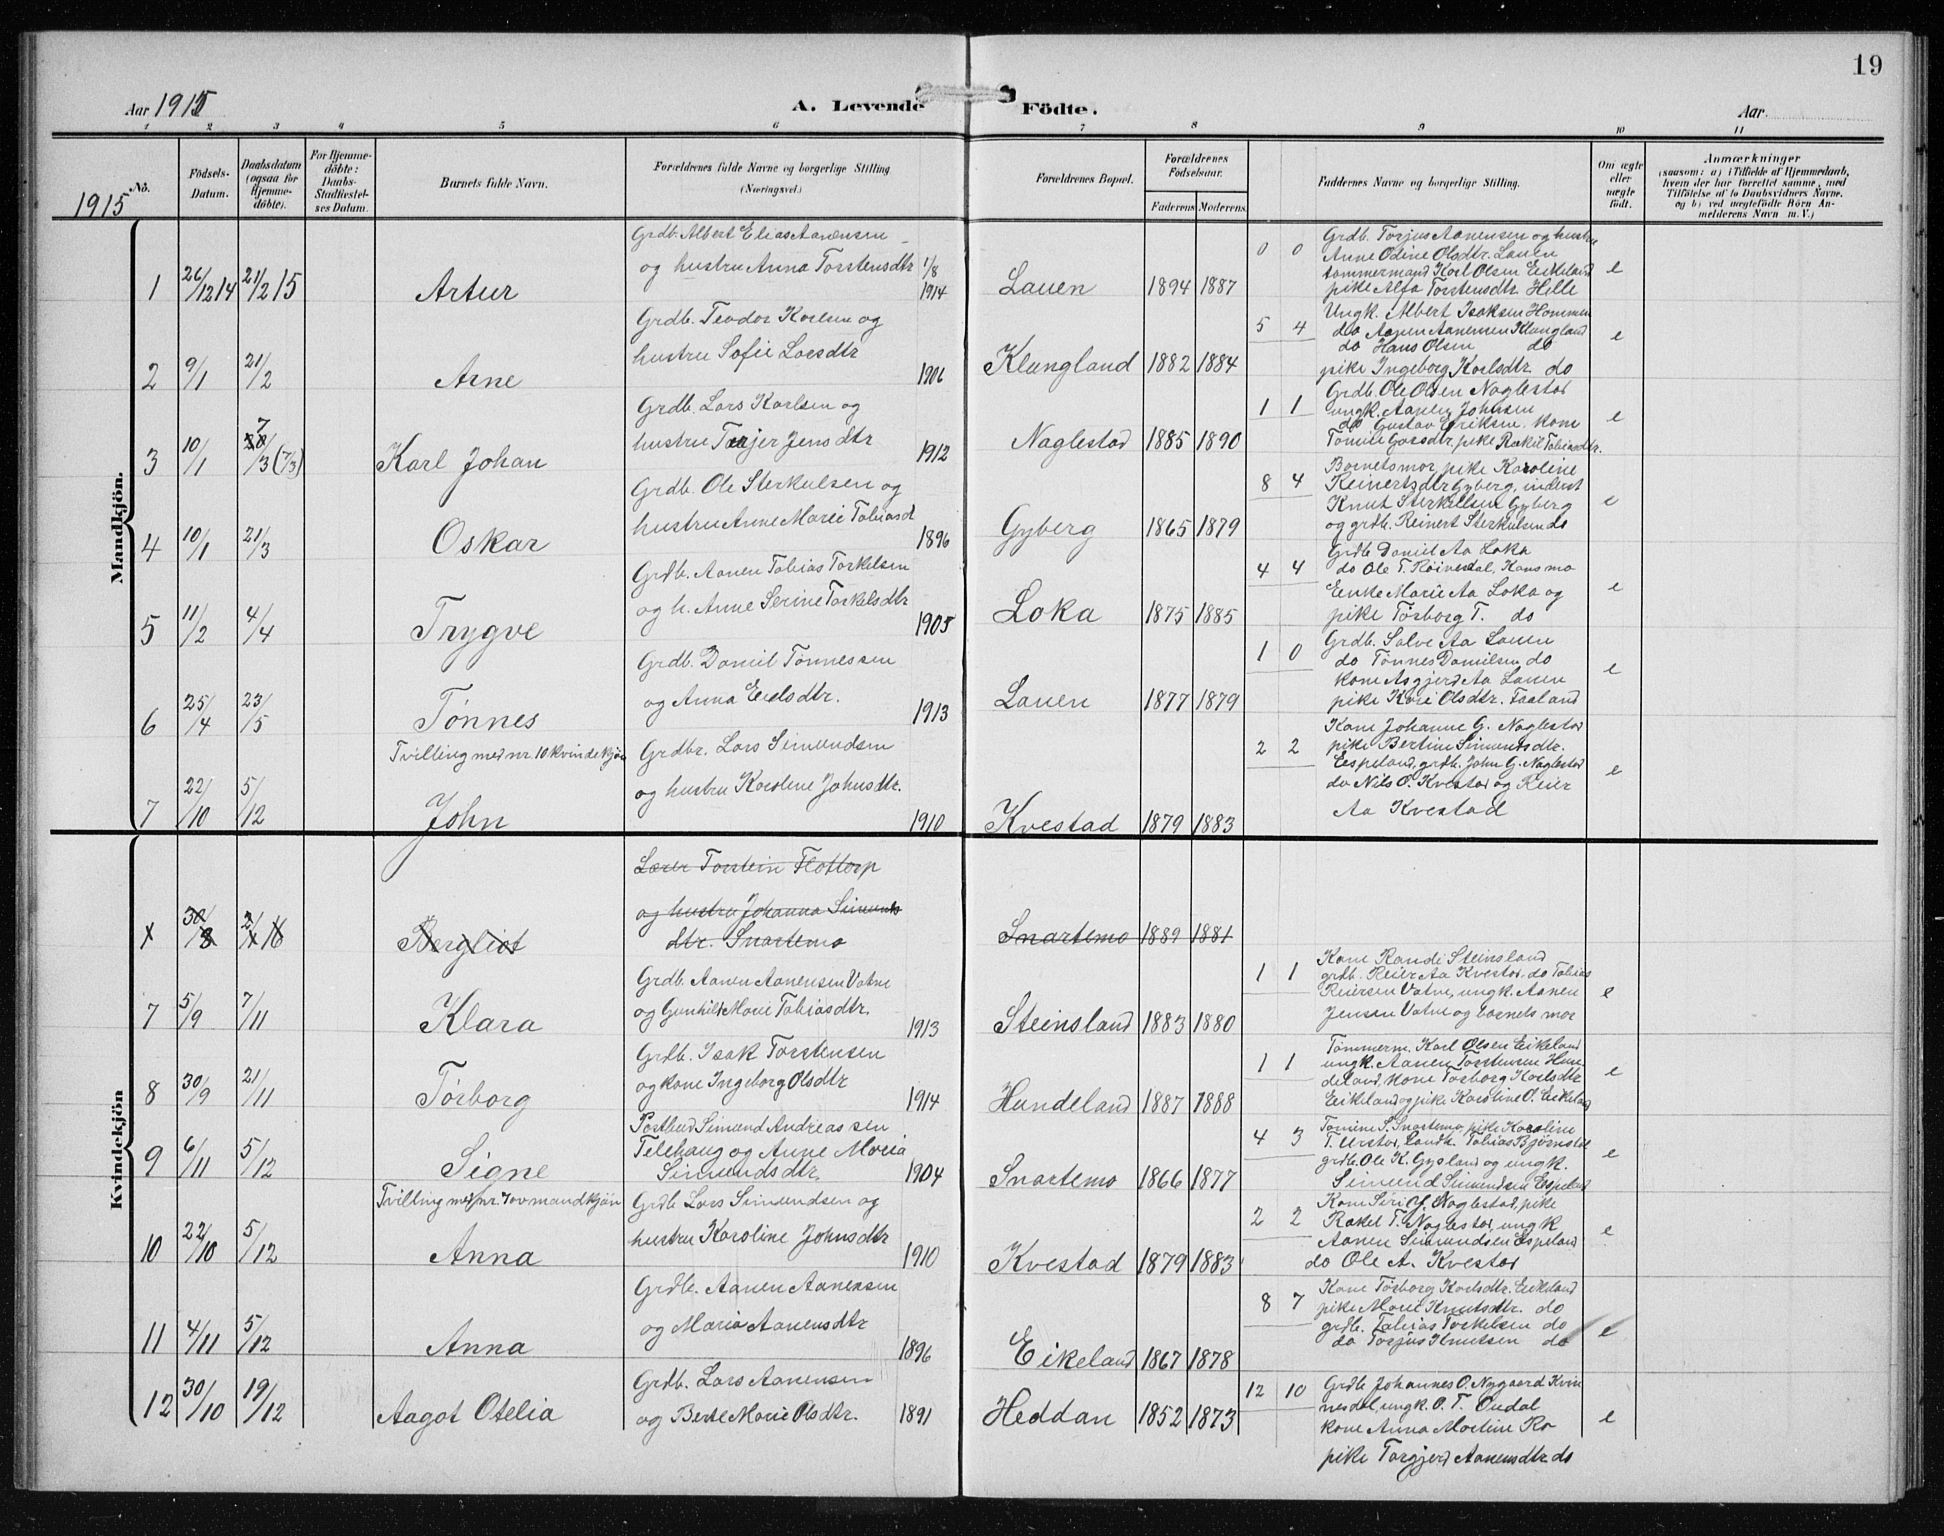 19
Aar 1915
A. Levende Födte.
Aar
1 2 3 4 5 6 7 8 9 10 11
No.
1915
Födsels-Datum.
Daabsdatum (ogsaa for Hjemme-döbte).
For Hjemme-döbte: Daabs-Stadfæstel-ses Datum.
Barnets fulde Navn.
Forældrenes fulde Navne og borgerlige Stilling (Næringsvei.)
Forældrenes Bopæl.
Forældrenes Födselsaar.
Faderens. Moderens.
Faddernes Navne og borgerlige Stilling.
Om ægte eller uægte födt.
Anmærkninger (saasom: a) i Tilfælde af Hjemmedaab, hvem der har forrettet samme, med Tilföielse af to Daabsvidners Navne, og b) ved uægtefödte Börn An-melderens Navn m. V.)
Mandkjön.
Grdb. Albert Elias Aanensen
og hustru Anna Torstensdtr 1/8 1914
1 26/12 14 21/2 15 Artur
Lauen 1894 1887
0 0 Grdb. Torjus Aanensen og hustru
Anne Odine Olsdtr. Lauen
tømmermand Karl Olsen Eikeland
pike Alfa Torstensdtr. Helle
e
Grdb. Teodor Karlsen og
hustru Sofie Larsdtr 1906
2 9/1 21/2 Arne
Klungland 1882 1884
5 4 Ungk. Albert Isaksen Hommen
do Aanen Aanensen Klungland
do Hans Olsen do
pike Ingeborg Karlsdtr do
e
Grdb. Lars Karlsen og
hustru Torjer Jensdtr 1912
3 10/1 7/3 (7/3) Karl Johan
Naglestad 1885 1890
1 1 Grdb. Ole Olsen Naglestad
ungk. Aanen Johnsen
do Gustav Eriksen. kone
Tomine Larsdtr, pike Rakel Tobiasdtr.
e
Grdb. Ole Sterkulsen og
hustru Anne Marie Tobiasd 1896
4 10/1 21/3 Oskar
Gyberg 1865 1879
8 4 Barnetsmor, pike Karoline
Reinertsdtr Gyberg, inderst
Knut Sterkulsen Gyberg
og grdb. Reinert Sterkulsen do
e
Grdb. Aanen Tobias Torkelsen
og h. Anne Serine Torkelsdtr 1905
5 11/2 4/4 Trygve
Loka 1875 1885
4 4 Grdb Daniel Aa Loka
do Ole T. Røivesdal, Hans mo
Enke Marie Aa Loka og
pike Tørborg T. do
e
Grdb. Daniel Tønnessen
og Anna Eielsdtr. 1913
6 25/4 23/5 Tønnes
Lauen 1877 1879
1 0 Grdb. Salve Aa Lauen
do Tønnes Danielsen do
kone Asgjerd Aa Lauen
pike Kari Olsdtr. Faaland
e
Tvilling med nr. 10 kvindekjøn
Grdbr. Lars Simundsen
og hustru Karoline Johnsdtr. 1910
7 22/10 5/12 John
Kvestad 1879 1883
2 2 Kone Johanne G. Naglestad
pike Bertine Simundsdtr.
Espeland, grdb. John G. Naglestad
do Nils O. Kvestad og Reier
Aa Kvestad
e
Kvindekjön
Lærer Torstein Flottorp
og hustru Johanna Simunds
dtr. Snartemo
30/8 Bergliot
Snartemo 1889 1881
Grdb. Aanen Aanensen Vatne
og Gunhild Marie Tobiasdtr. 1913
7 5/9 7/11 Klara
Steinsland 1883 1880
1 1 Kone Randi Steinsland
grdb. Reier Aa Kvestad, do Tobias
Reiersen Vatne, ungk. Aanen
Jensen Vatne og barnets mor
e
Grdb. Isak Torstensen
og kone Ingeborg Olsdtr 1914
8 30/9 21/11 Tørborg
Hundeland 1887 1888
1 1 Tømmerm. Karl Olsen Eikeland
ungk. Aanen Torstensen Hun-
deland, kone Tørborg Karlsdtr
Eikeland og pike Karoline O. Eikeland
e
Postbud Simund Andreassen
Telehaug og Anne Maria
Simundsdtr. 1904
9 6/11 5/12 Signe
Snartemo 1866 1877
4 3 Tomine S. Snartemo, pike Karoline
T. Urstad, Landh. Tobias Bjørnstøl
grdb. Ole K. Gysland og ungk.
Simund Simundsen Espeland
e
Tvilling med nr. 7 ov mandkjøn
Grdb Lars Simundsen og
hustru Karoline Johnsdtr 1910
10 22/10 5/12 Anna
Kvestad 1879 1883
2 2 Kone Siri G. Naglestad, pike
Rakel T. Naglestad, ungk
Aanen Simundsen Espeland
do Ole A. Kvestad
e
Grdb. Aanen Aanensen
og Maria Aanensdtr 1896
11 4/11 5/12 Anna
Eikeland 1867 1878
8 7 Kone Tørborg Karlsdtr. Eikeland
pike Marie Knutsdtr. do
grdb. Tobias Torkelsen do
do Torjus Knutsen do
e
Grdb. Lars Aanensen
og Berte Marie Olsdtr. 1891
12 30/10 19/12 Aagot Otelia
Heddan 1852 1873
12 10 Grdb Johannes O. Nygaard Kvin
nesdal, ungk. O. T. Omdal
kone Anna Martine Ro
pike Torgjerd Aanensdtr do
e